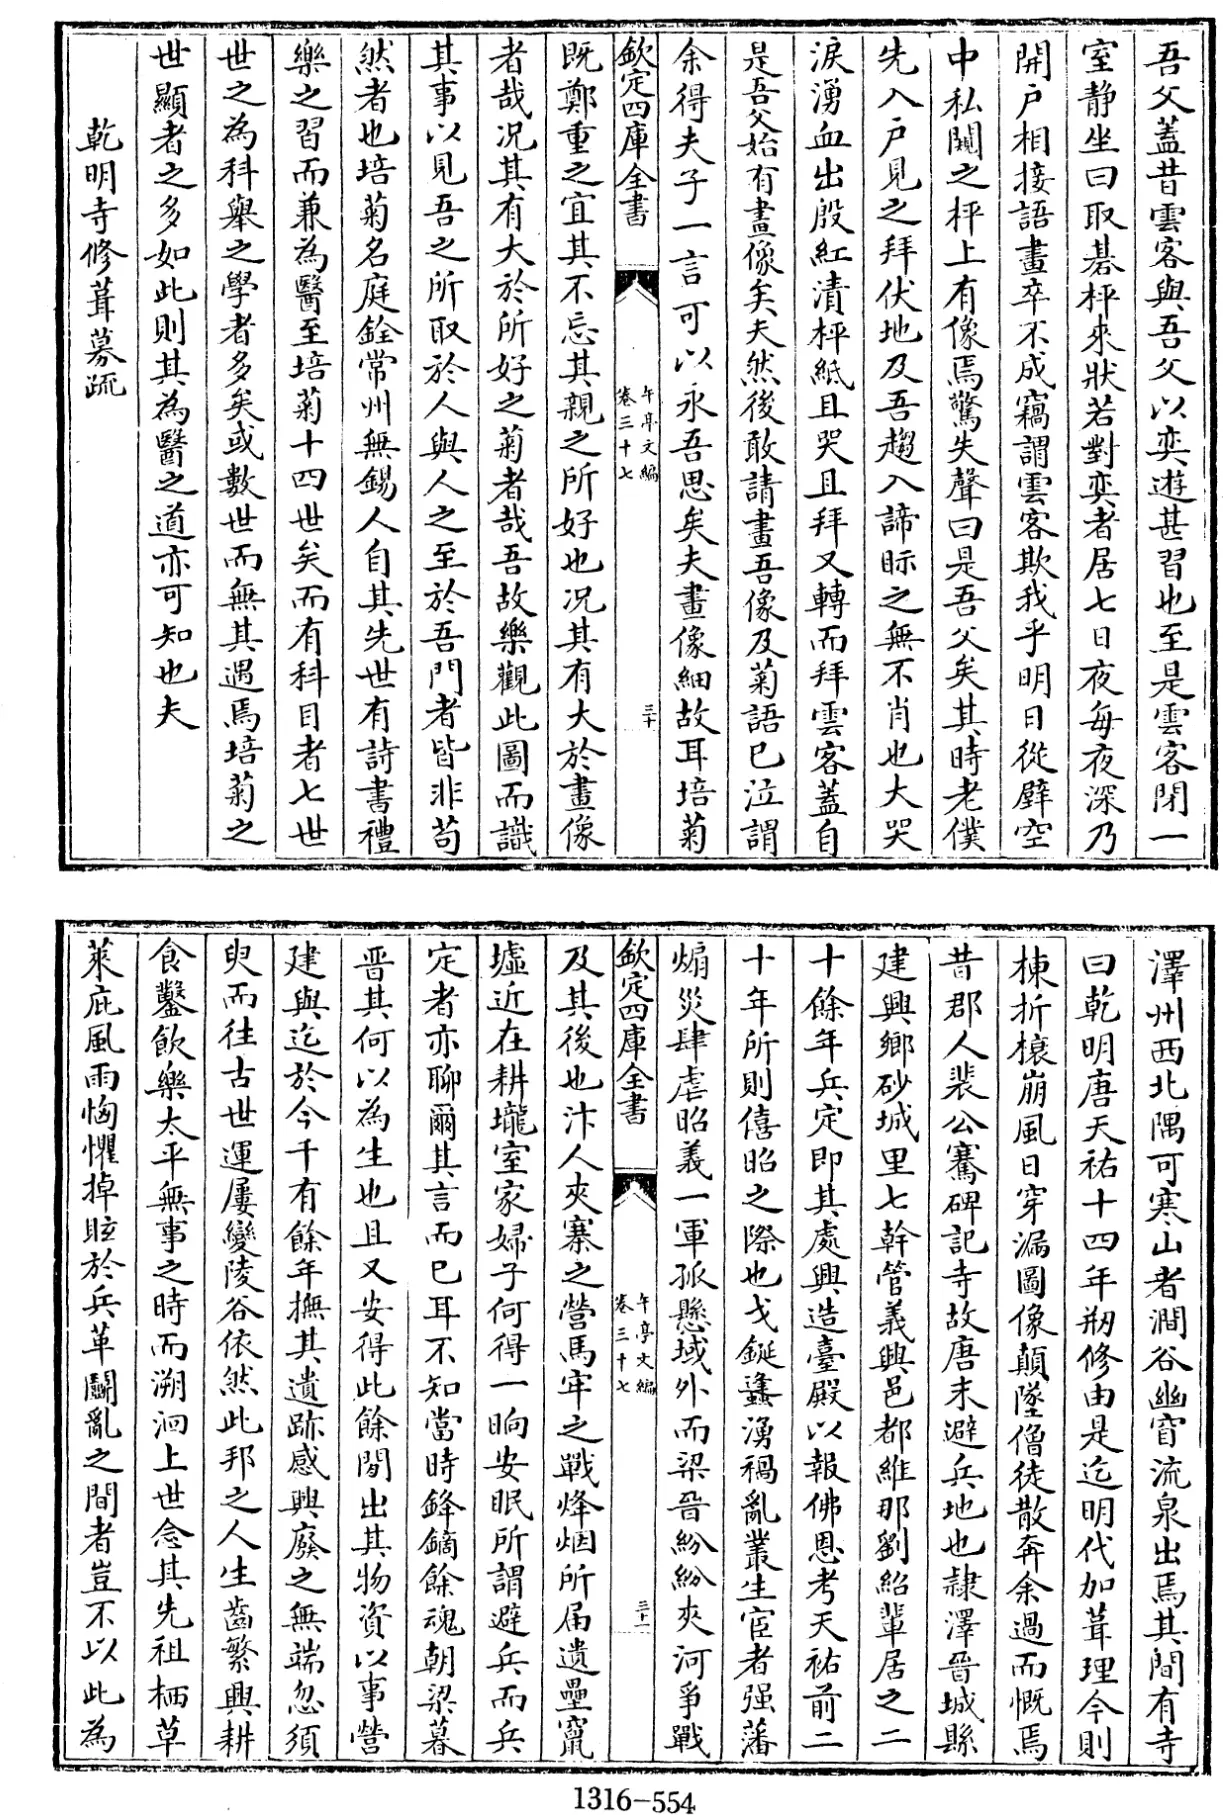 吾父蓋昔雲客與吾父以奕遊甚習也至是雲客閉一
室静坐曰取碁枰來狀若對奕者居七日夜每夜深乃
開戶相接語畫卒不成竊謂雲客欺我乎明日從壁空
中私闚之枰上有像焉驚失聲曰是吾父矣其時老僕
先入戶見之拜伏地及吾趨入諦眎之無不肖也大哭
淚湧血出殷紅漬枰紙且哭且拜又轉而拜雲客蓋自
是吾父始有畫像矣夫然後敢請畫吾像及菊語已泣謂
余得夫子一言可以永吾思矣夫畫像細故耳培菊
欽定四庫全書
午亭文編
卷三十七
三十
既鄭重之宜其不忘其親之所好也况其有大於畫像
者哉况其有大於所好之菊者哉吾故樂觀此圖而識
其事以見吾之所取於人與人之至於吾門者皆非苟
然者也培菊名庭銓常州無錫人自其先世有詩書禮
樂之習而兼為醫至培菊十四世矣而有科目者七世
世之為科舉之學者多矣或數世而無其遇焉培菊之
世顯者之多如此則其為醫之道亦可知也夫
乾明寺修葺募疏
澤州西北隅可寒山者澗谷幽窅流泉出焉其間有寺
曰乾明唐天祐十四年剏修由是迄明代加葺理今則
棟折榱崩風日穿漏圖像顛墜僧徒散奔余過而慨焉
昔郡人裴公騫碑記寺故唐末避兵地也隷澤晉城縣
建興鄉砂城里七幹管義興邑都維那劉紹輩居之二
十餘年兵定即其處興造臺殿以報佛恩考天祐前二
十年所則僖昭之際也戈鋋蠭湧禍亂叢生宦者强藩
煽災肆虐昭義一軍孤懸域外而梁晉紛紛夾河爭戰
欽定四庫全書
午亭文編
卷三十七
三十一
及其後也汴人夾寨之營馬牢之戰烽烟所届遺壘竄
墟近在耕壠室家婦子何得一晌安眠所謂避兵而兵
定者亦聊爾其言而已耳不知當時鋒鏑餘魂朝梁暮
晉其何以為生也且又安得此餘閒出其物資以事營
建與迄於今千有餘年撫其遺跡感興廢之無端忽須
臾而往古世運屢變陵谷依然此邦之人生齒繁興耕
食鑿飲樂太平無事之時而溯洄上世念其先祖栖草
萊庇風雨恟懼掉眩於兵革鬬亂之間者豈不以此為
1316-554